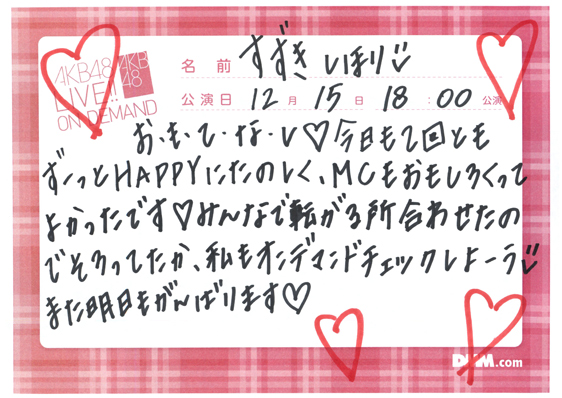 AKB48
LIVE!!
ON DEMAND
AKB
48
名 前 すずき しほり
公演日 12 月 15 日 18 : 00 公演
お・も・て・な・し♡今日も2回とも
ずーっとHAPPYにたのしく、MCもおもしろくって
よかったです♡みんなで転がる所合わせたの
でそろってたか、私もオンデマンドチェックしよーう
また明日もがんばります♡
DMM.com